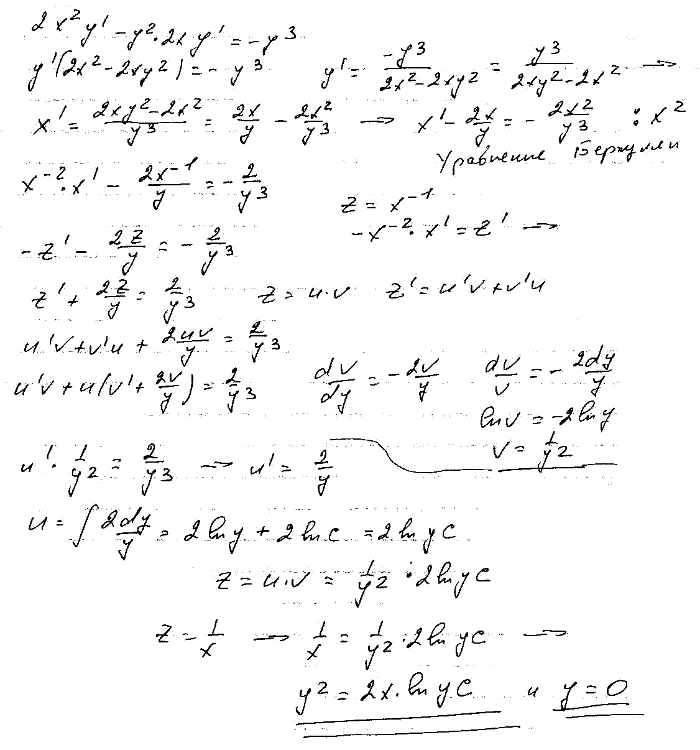 2x² y' - y²·2x y' = -y³
y'(2x² - 2xy²) = -y³    y' = -y³/(2x² - 2xy²) = y³/(2xy² - 2x²) →
x' = (2xy² - 2x²)/y³ = 2x/y - 2x²/y³ → x' - 2x/y = - 2x²/y³  : x²
Уравнение Бернулли
x⁻²·x' - 2x⁻¹/y = - 2/y³
z = x⁻¹
-x⁻²·x' = z' →
-z' - 2z/y = - 2/y³
z' + 2z/y = 2/y³    z = u·v    z' = u'v + v'u
u'v + v'u + 2uv/y = 2/y³
u'v + u(v' + 2v/y) = 2/y³    dv/dy = - 2v/y    dv/v = - 2dy/y
ln v = -2 ln y
v = 1/y²
u'·1/y² = 2/y³ → u' = 2/y
u = ∫ 2dy/y = 2 ln y + 2 ln c = 2 ln yc
z = u·v = 1/y² · 2 ln yc
z = 1/x → 1/x = 1/y² · 2 ln yc →
y² = 2x · ln yc  и  y = 0